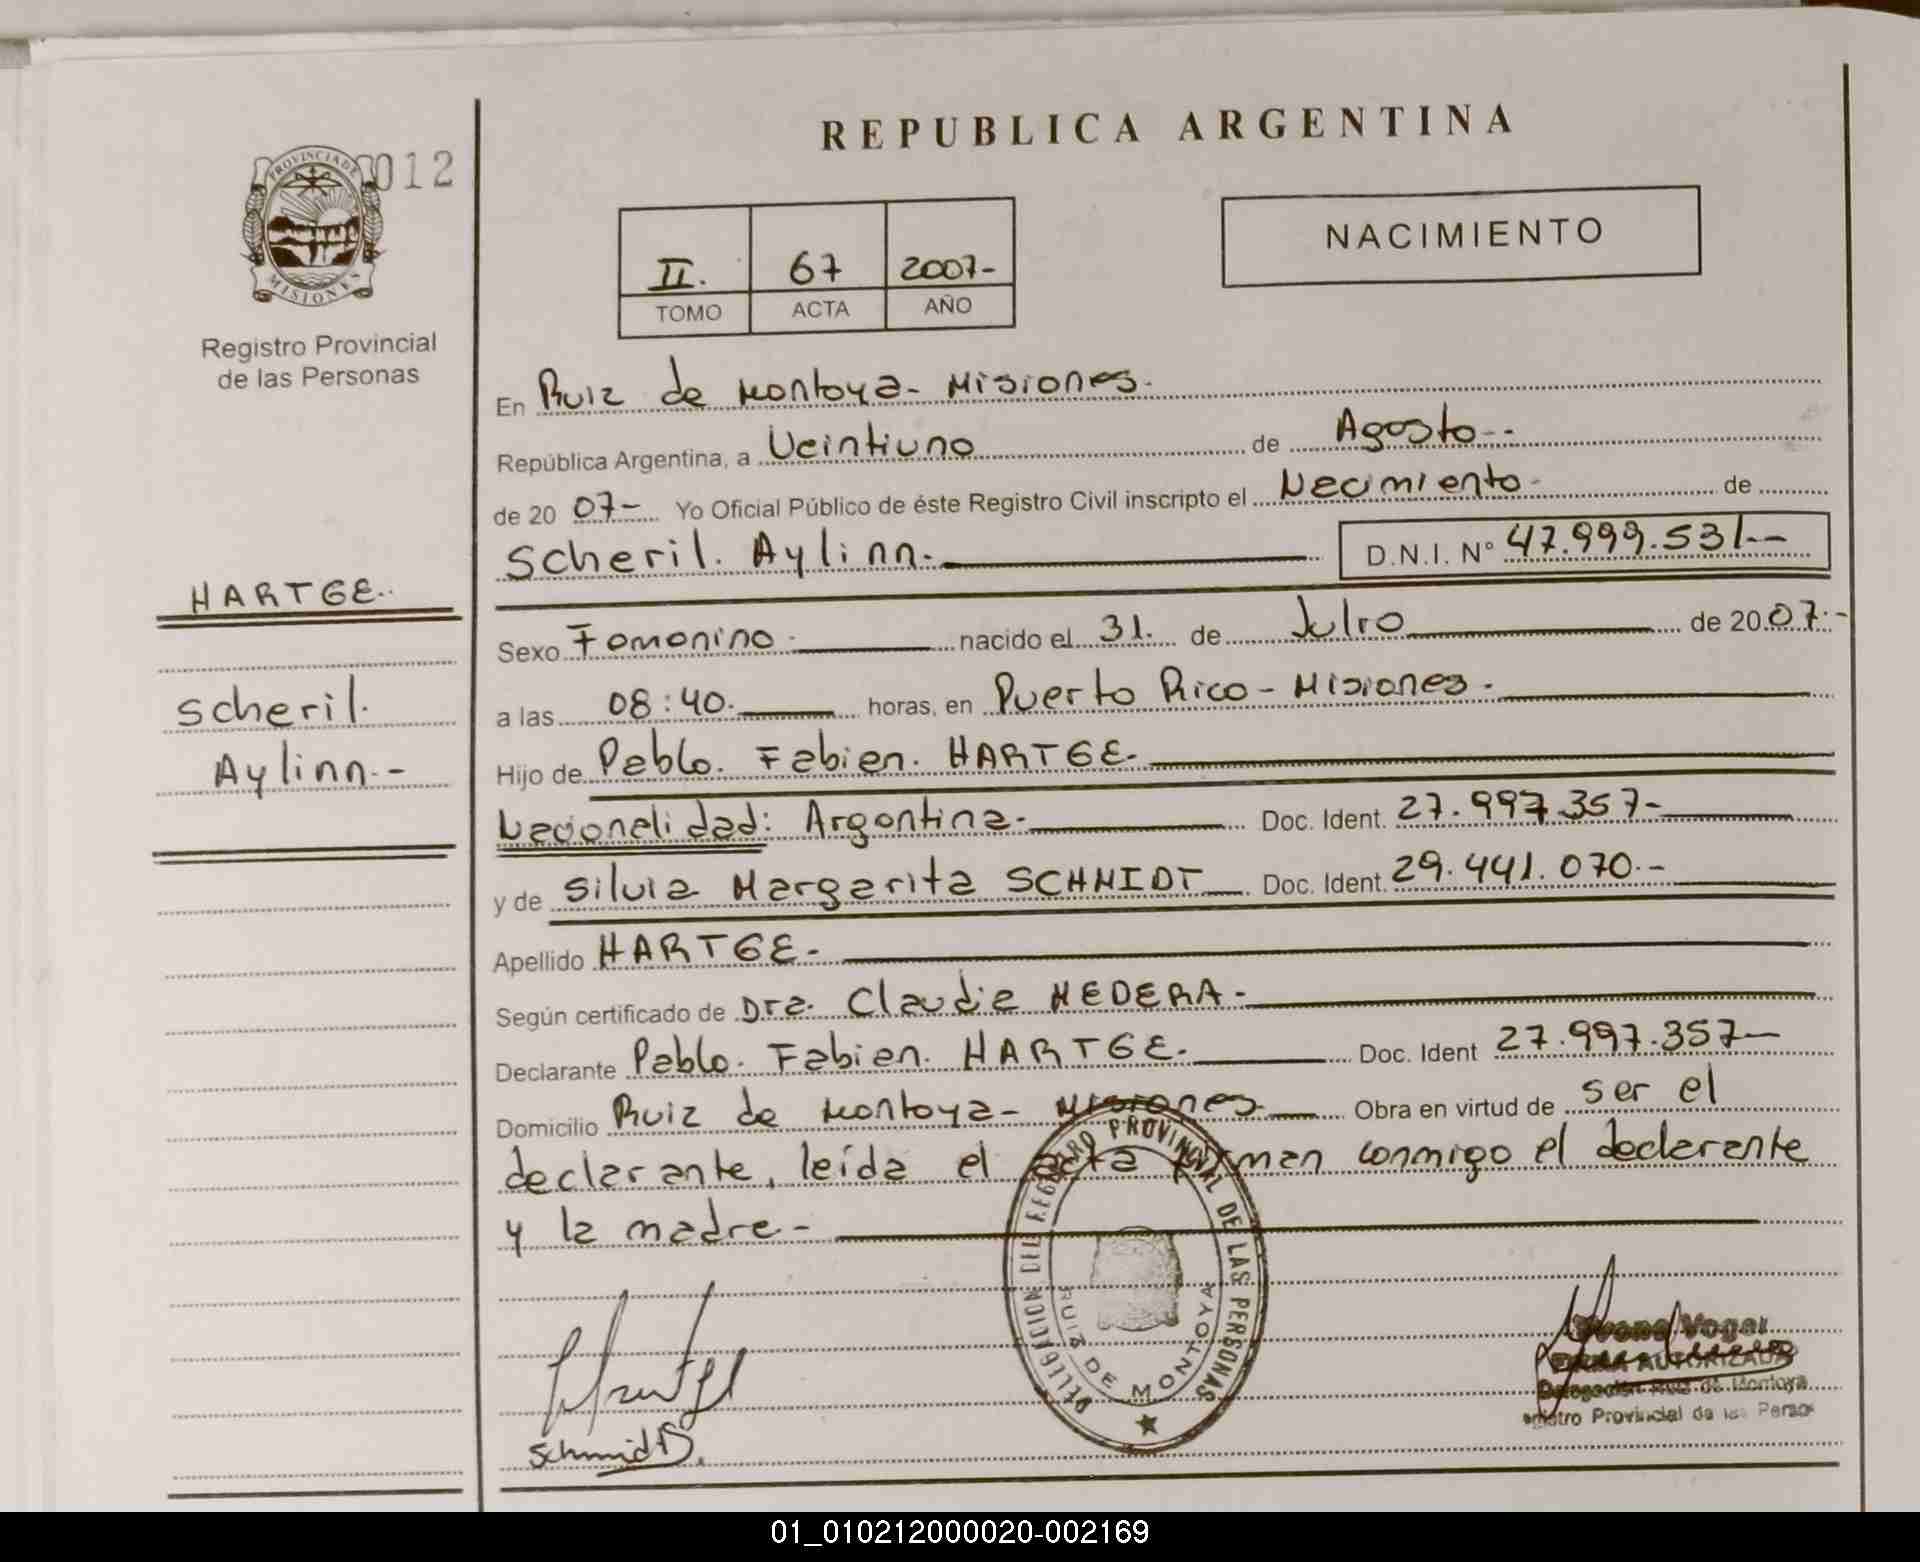 REPUBLICA ARGENTINA
PROVINCIA DE
MISIONES
012
Registro Provincial
de las Personas
II. 67 2007-
TOMO ACTA AÑO
NACIMIENTO
En Ruiz de Montoya- Misiones.
República Argentina, a Veintiuno de Agosto--
de 20 07- Yo Oficial Público de éste Registro Civil inscripto el Nacimiento- de
Scheril. Aylinn. D.N.I. Nº 47.999.531--
HARTGE..
Scheril.
Aylinn.-
Sexo Femenino- nacido el 31. de Julio de 20 07.-
a las 08:40. horas, en Puerto Rico - Misiones.
Hijo de Pablo. Fabian. HARTGE-
Nacionalidad: Argentina- Doc. Ident. 27.997.357-
y de Silvia Margarita SCHMIDT Doc. Ident. 29.441.070.-
Apellido HARTGE-
Según certificado de Dra. Claudia MEDERA-
Declarante Pablo. Fabian. HARTGE. Doc. Ident 27.997.357-
Domicilio Ruiz de Montoya- Misiones Obra en virtud de ser el
declarante, leída el acta firman conmigo el declarante
y la madre-
DELEGACION DEL REGISTRO PROVINCIAL DE LAS PERSONAS
RUIZ DE MONTOYA
Schmidt S.
FIRMA AUTORIZADA
Delegación Ruiz de Montoya
Provincial de las
01_010212000020-002169